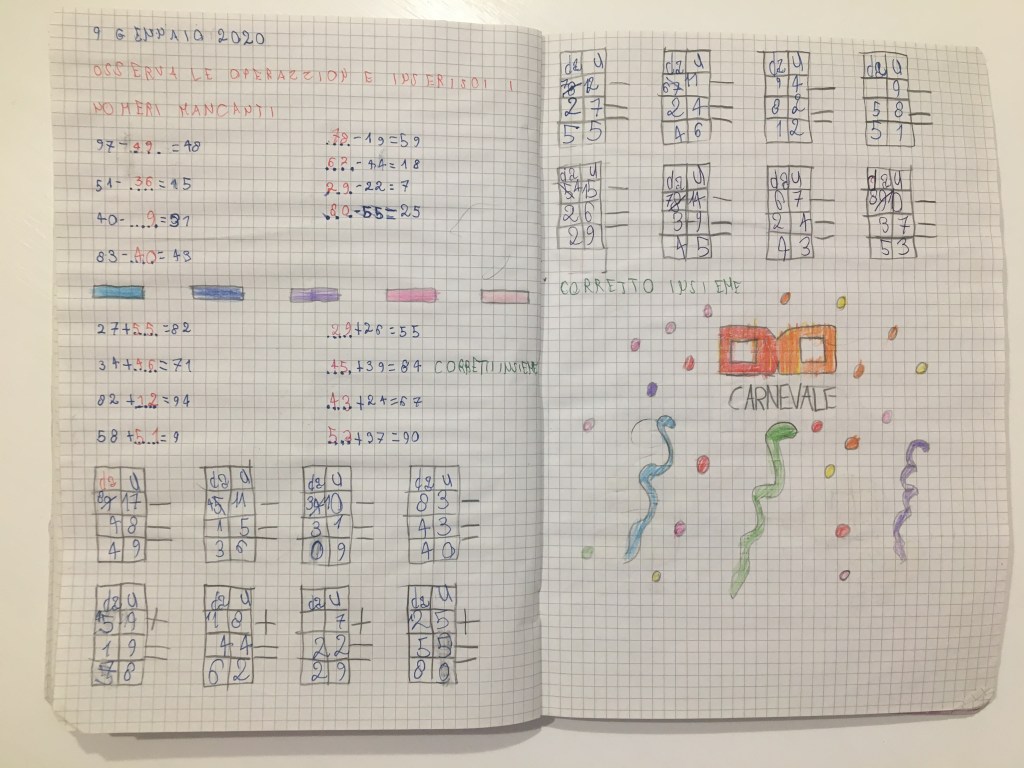 9 GENNAIO 2020
OSSERVA LE OPERAZZION E INSERISCI I
NUMERI MANCANTI
97-49=48
78-19=59
62-44=18
51-36=15
29-22=7
40-9=31
80-55=25
83-40=43
27+55=82
29+26=55
34+36=71
45+39=84 CORRETTI INSIEME
82+12=94
43+24=67
58+51=9
53+37=90
da u da u da u da u
8 17 - 45 11 - 3 10 - 8 3 -
4 8 = 1 5 = 3 1 = 4 3 =
4 9 3 6 0 9 4 0
da u da u da u da u
5 9 + 1 8 + 7 + 2 5 +
1 9 = 4 4 = 2 2 = 5 5 =
7 8 6 2 2 9 8 0
da u da u da u da u
78 12 - 67 11 - 9 4 - 9 -
2 7 = 2 4 = 8 2 = 5 8 =
5 5 4 6 1 2 5 1
da u da u da u da u
54 15 - 78 14 - 6 7 - 10 -
2 6 = 3 9 = 2 4 = 3 7 =
2 9 4 5 4 3 5 3
CORRETTO INSIEME
CARNEVALE